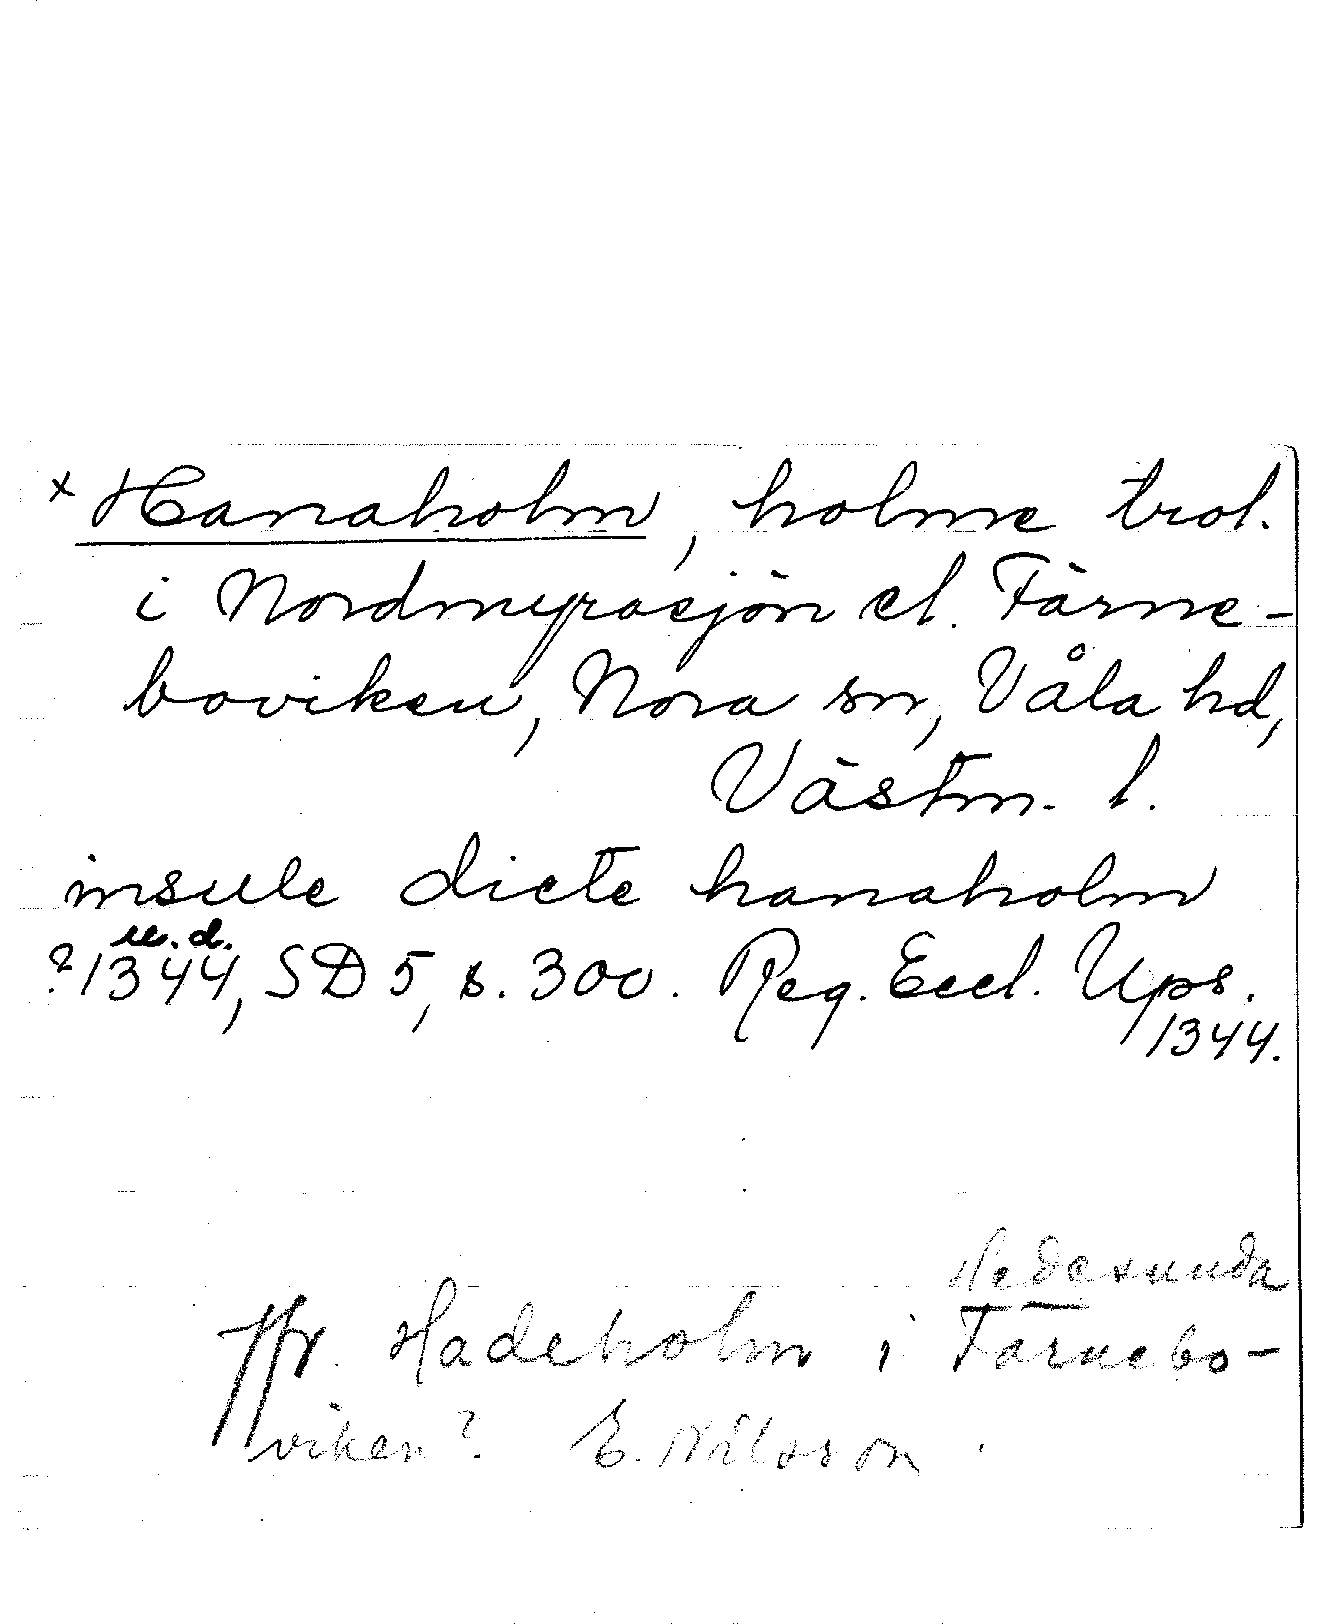 x Hanaholm, holme trol.
i Nordmyrasjön el. Färne-
boviken, Nora sn, Våla hd,
Västm. l.
insule dicte hanaholm
u.d.
?1344, SD 5, s. 300. Reg. Eccl. Ups.
1344.
Hedesunda
Jfr Hadeholm i Färnebo-
viken? E. Nilsson.